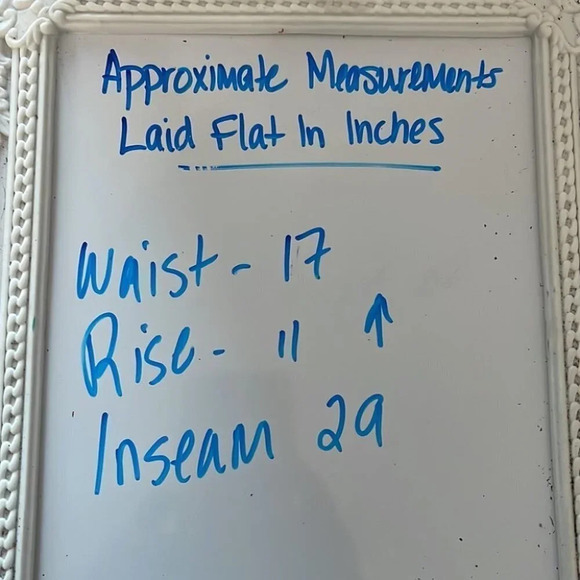 Approximate Measurements
Laid Flat In Inches
Waist - 17
Rise - 11 ↑
Inseam 29